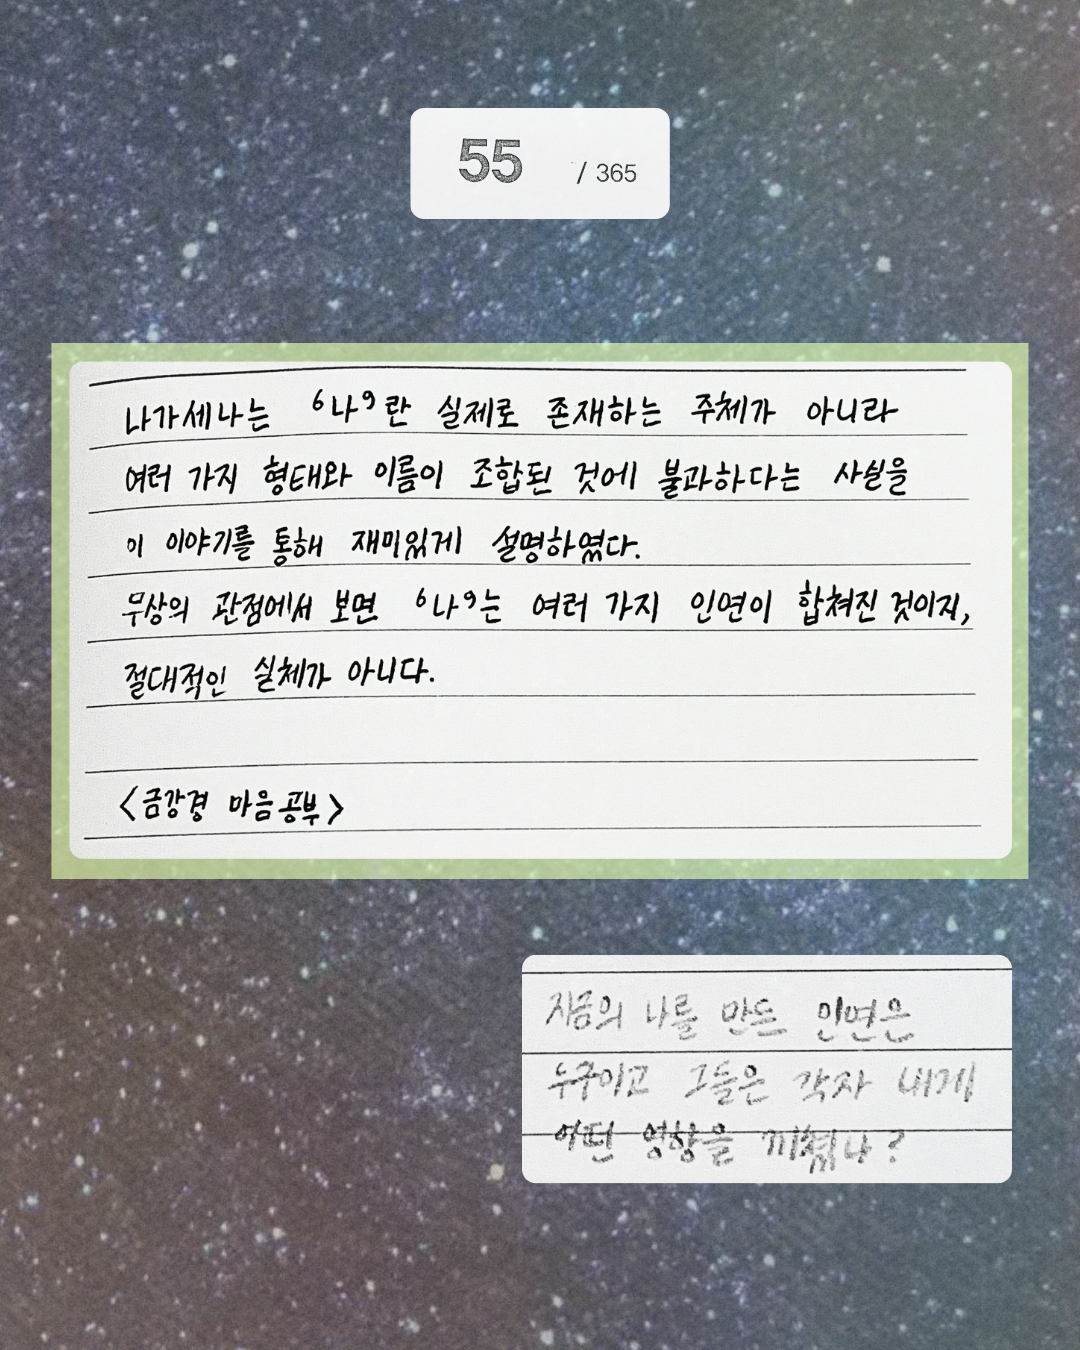 55 / 365
나가세나는 '나'란 실제로 존재하는 주체가 아니라
여러 가지 형태와 이름이 조합된 것에 불과하다는 사실을
이 이야기를 통해 재미있게 설명하였다.
무상의 관점에서 보면 '나'는 여러 가지 인연이 합쳐진 것이지,
절대적인 실체가 아니다.
<금강경 마음공부>
지금의 나를 만든 인연은
누구이고 그들은 각자 내게
어떤 영향을 끼쳤나?